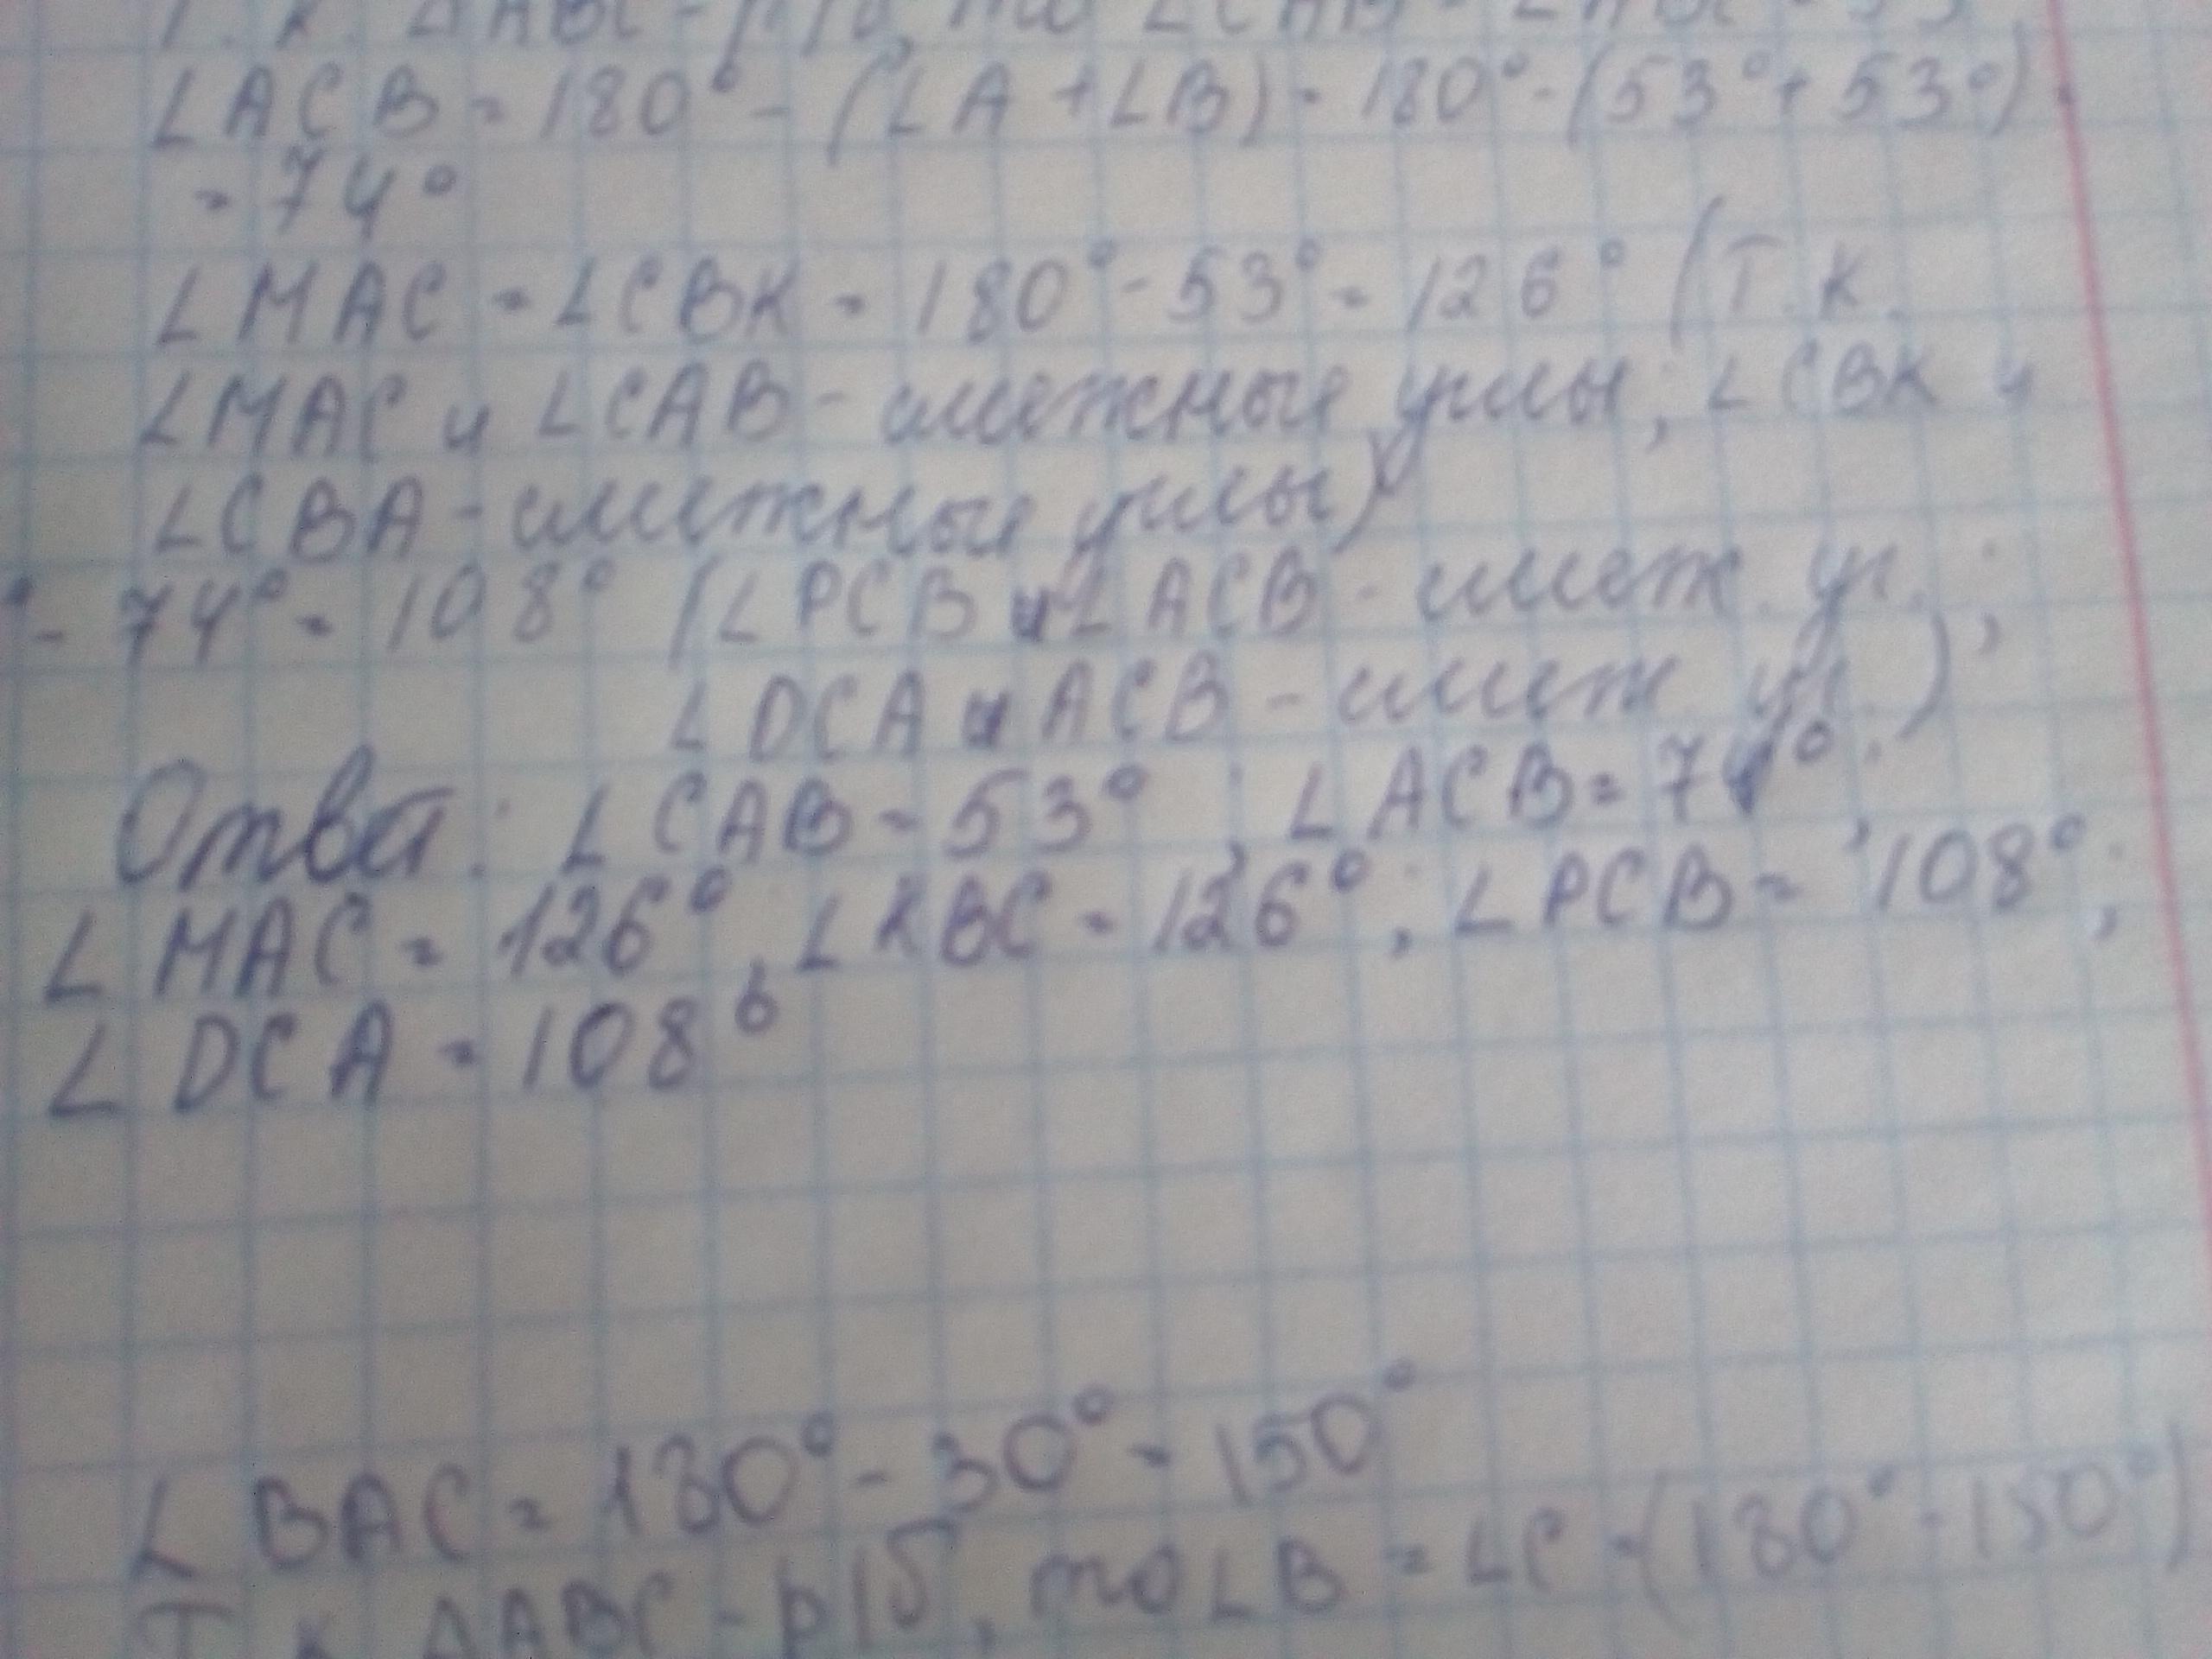 Т. к. ΔABC - р/б, то ∠CAB = ∠ABC = 53
∠ACB = 180° - (∠A + ∠B) = 180° - (53° + 53°) =
= 74°
∠MAC = ∠CBK = 180° - 53° = 126° (Т. к.
∠MAC и ∠CAB - смежные углы; ∠CBK и
∠CBA - смежные углы)
° - 74° = 108° (∠PCB и ∠ACB - смеж. уг.;
∠DCA и ACB - смеж уг.)
Ответ: ∠CAB = 53° ; ∠ACB = 74°;
∠MAC = 126°, ∠KBC = 126°; ∠PCB = 108°;
∠DCA = 108°
∠BAC = 180° - 30° = 150°
Т к ΔABC - р/б, то ∠B = ∠C = (180° - 150°)